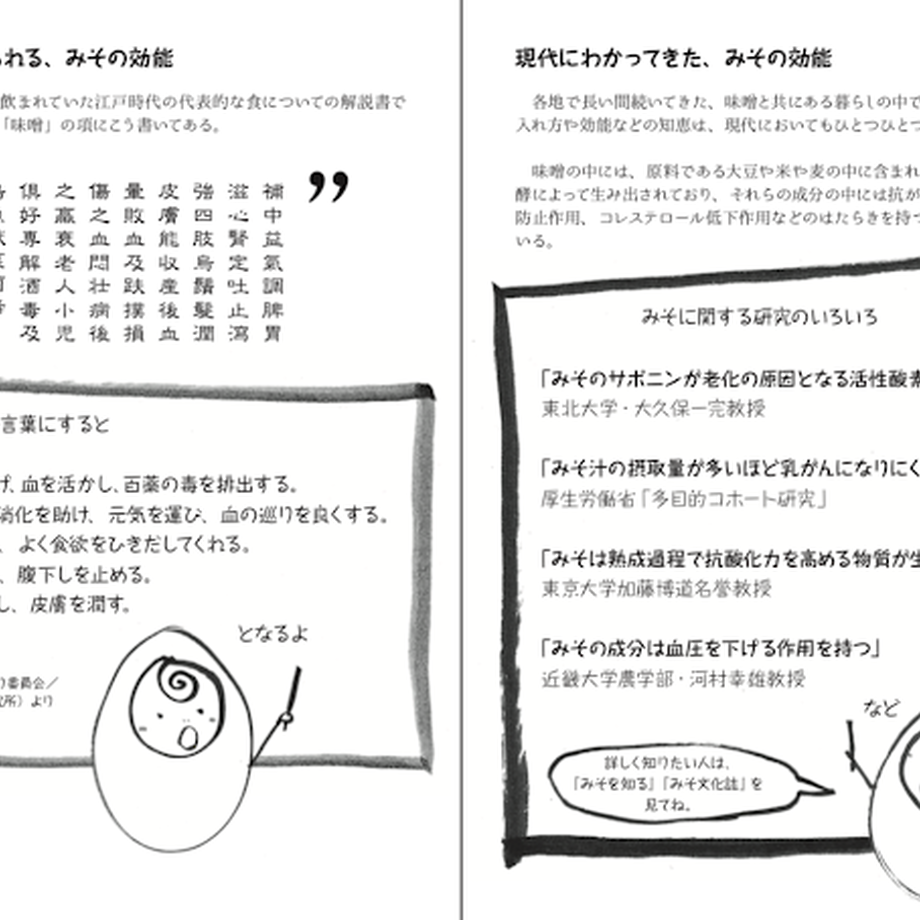 れる、みその効能
飲まれていた江戸時代の代表的な食についての解説書で
「味噌」の項にこう書いてある。
”
補中益氣調脾胃
滋心腎定吐止瀉
強四肢烏鬚髮潤
皮膚能収産後血
暈敗血及跌撲損
傷之血悶壮病後
之羸衰老人小児
俱好専解酒毒及
言葉にすると
血を活かし、百薬の毒を排出する。
消化を助け、元気を運び、血の巡りを良くする。
、よく食欲をひきだしてくれる。
、腹下しを止める。
し、皮膚を潤す。
となるよ
委員会／
所）より
現代にわかってきた、みその効能
各地で長い間続いてきた、味噌と共にある暮らしの中で
入れ方や効能などの知恵は、現代においてもひとつひとつ
味噌の中には、原料である大豆や米や麦の中に含まれ
酵によって生み出されており、それらの成分の中には抗が
防止作用、コレステロール低下作用などのはたらきを持つ
いる。
みそに関する研究のいろいろ
「みそのサポニンが老化の原因となる活性酸素
東北大学・大久保一完教授
「みそ汁の摂取量が多いほど乳がんになりにく
厚生労働省「多目的コホート研究」
「みそは熟成過程で抗酸化力を高める物質が生
東京大学加藤博道名誉教授
「みその成分は血圧を下げる作用を持つ」
近畿大学農学部・河村幸雄教授
など
詳しく知りたい人は、
「みそを知る」「みそ文化誌」を
見てね。